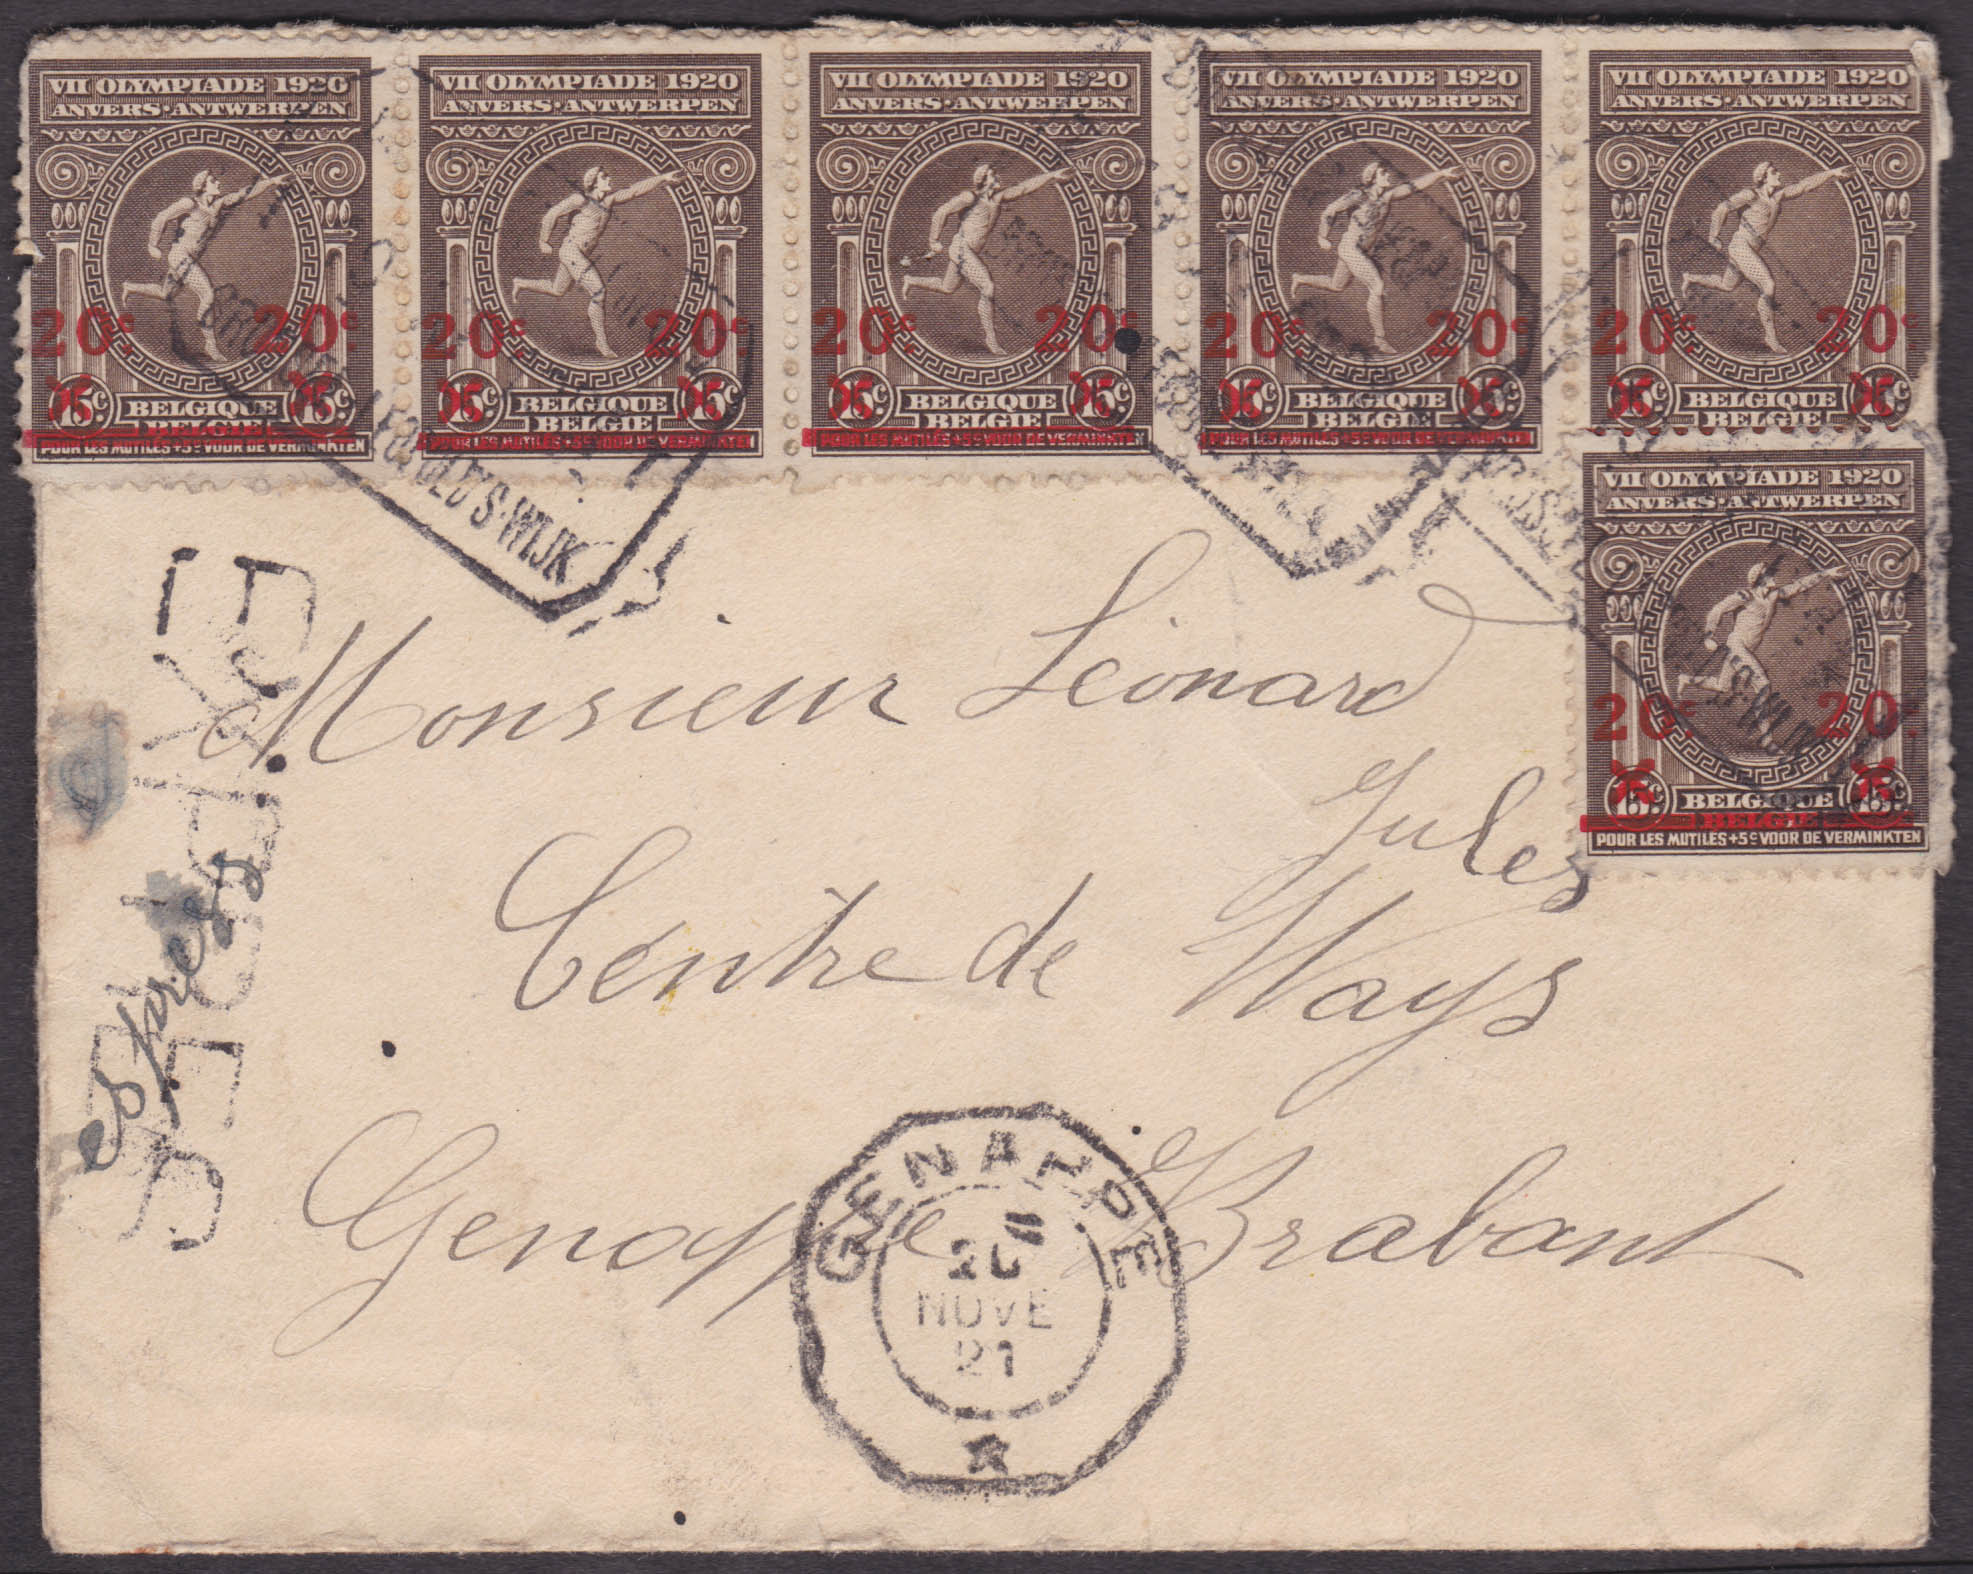 VII OLYMPIADE 1920 VII OLYMPIADE 1920 VII OLYMPIADE 1920 VII OLYMPIADE 1920 VII OLYMPIADE 1920
ANVERS·ANTWERPEN ANVERS·ANTWERPEN ANVERS·ANTWERPEN ANVERS·ANTWERPEN ANVERS·ANTWERPEN
20c 20c 20c 20c 20c 20c 20c 20c 20c 20c
15c BELGIQUE 15c 15c BELGIQUE 15c 15c BELGIQUE 15c 15c BELGIQUE 15c 15c BELGIQUE 15c
BELGIE BELGIE BELGIE BELGIE BELGIE
POUR LES MUTILES +5c VOOR DE VERMINKTEN POUR LES MUTILES +5c VOOR DE VERMINKTEN POUR LES MUTILES +5c VOOR DE VERMINKTEN POUR LES MUTILES +5c VOOR DE VERMINKTEN
VII OLYMPIADE 1920
ANVERS·ANTWERPEN
20c 20c
15c BELGIQUE 15c
BELGIE
POUR LES MUTILES +5c VOOR DE VERMINKTEN
LEOPOLD'S-WIJK
Monsieur Léonard
Jules
Centre de Ways
Genappe Brabant
exprès
GENAPPE
11
20
NOVE
21